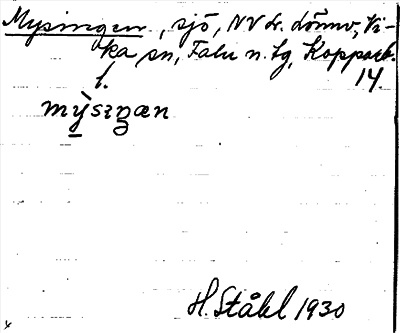 Mysingen, sjö, NV Lönnv, Vi-
ka sn, Falu n. tg, Kopparb.
l. 14
mỳsıŋæn
H. Ståhl 1930